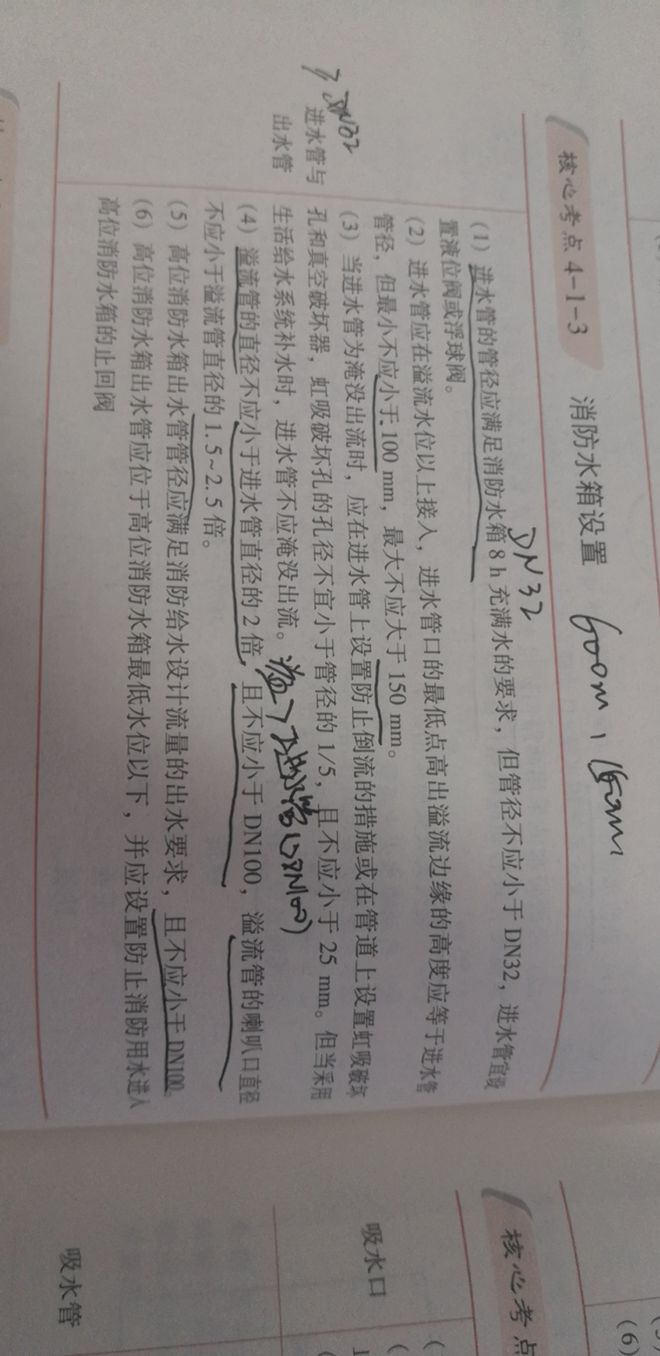 核心考点 4-1-3 消防水箱设置
DN32
进水管与
出水管
(1) 进水管的管径应满足消防水箱 8 h 充满水的要求，但管径不应小于 DN32，进水管宜设
置液位阀或浮球阀。
(2) 进水管应在溢流水位以上接入，进水管口的最低点高出溢流边缘的高度应等于进水管
管径，但最小不应小于 100 mm，最大不应大于 150 mm。
(3) 当进水管为淹没出流时，应在进水管上设置防止倒流的措施或在管道上设置虹吸破坏
孔和真空破坏器，虹吸破坏孔的孔径不宜小于管径的 1/5，且不应小于 25 mm。但当采用
生活给水系统补水时，进水管不应淹没出流。
(4) 溢流管的直径不应小于进水管直径的 2 倍，且不应小于 DN100，溢流管的喇叭口直径
不应小于溢流管直径的 1.5~2.5 倍。
(5) 高位消防水箱出水管管径应满足消防给水设计流量的出水要求，且不应小于 DN100。
(6) 高位消防水箱出水管应位于高位消防水箱最低水位以下，并应设置防止消防用水进入
高位消防水箱的止回阀
DN32
核心考点
吸水口
吸水管
(6)